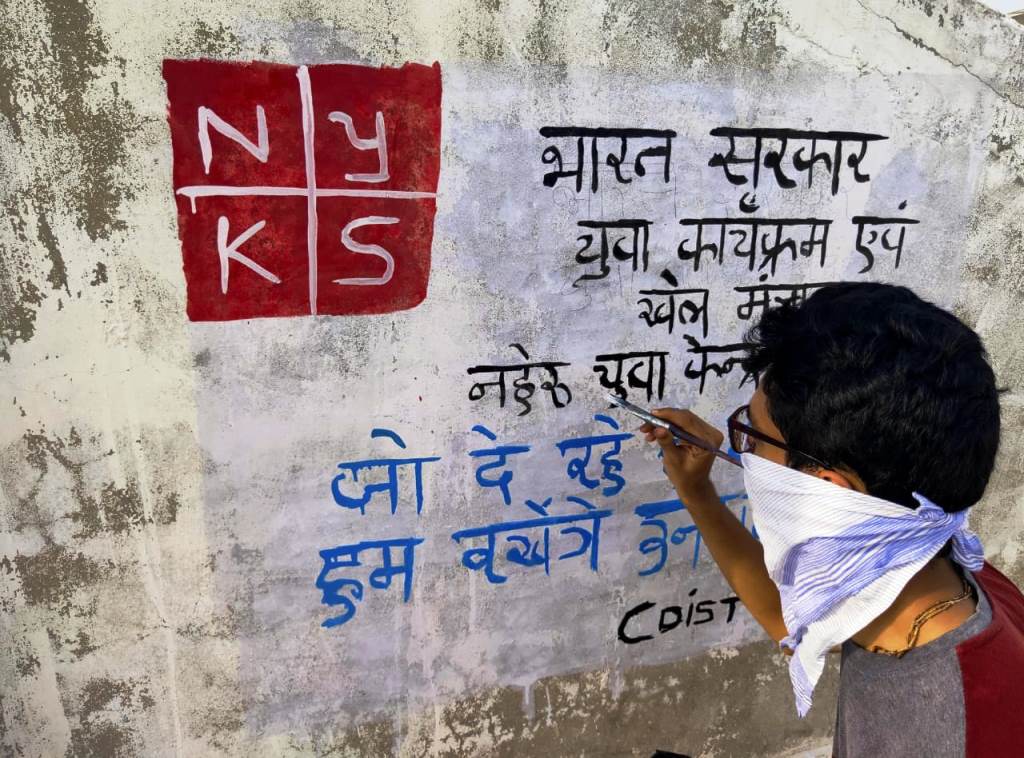 N y
K S
भारत सरकार
युवा कार्यक्रम एवं
खेल
नहेरु युवा
जो दे रहे
हम रखेंगे
CDIST